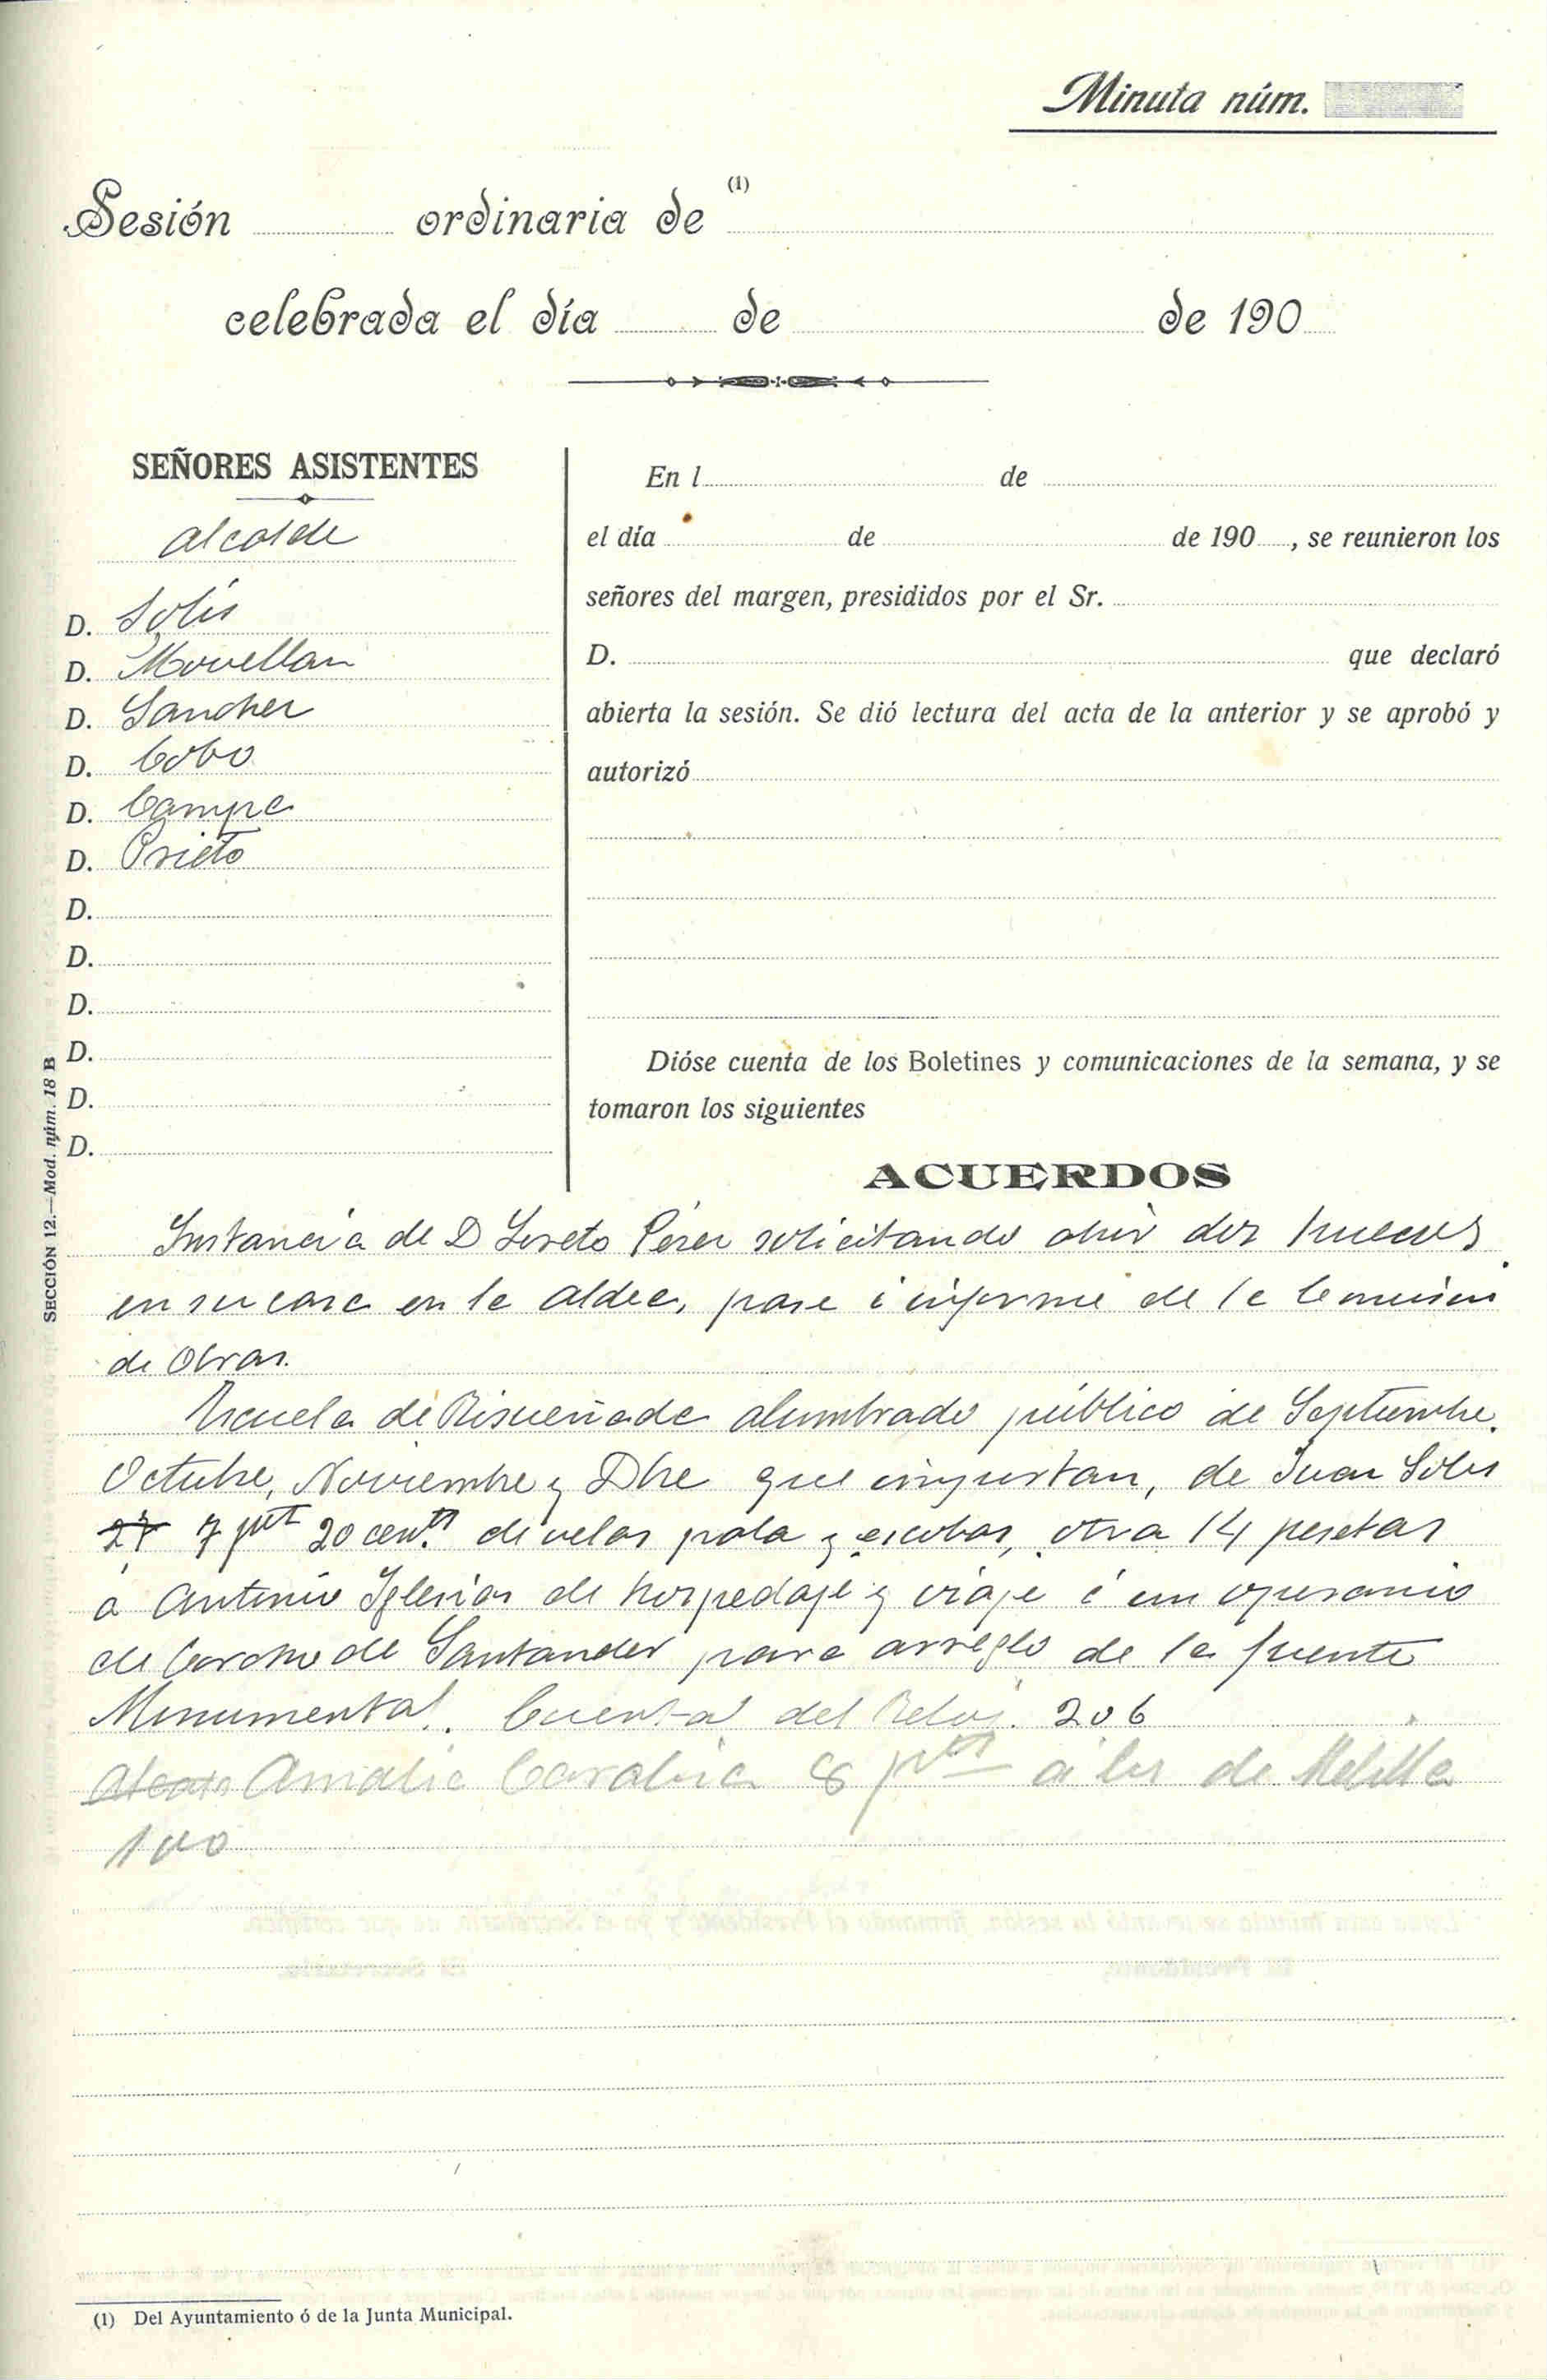 Minuta núm.
Sesión ordinaria de (1)
celebrada el día de de 190
SEÑORES ASISTENTES
alcalde
D. Solis
D. Movellan
D. Sanchez
D. Cobo
D. Campo
D. Prieto
D.
D.
D.
D.
D.
D.
En l de
el día de de 190 , se reunieron los
señores del margen, presididos por el Sr.
D. que declaró
abierta la sesión. Se dió lectura del acta de la anterior y se aprobó y
autorizó
Dióse cuenta de los Boletines y comunicaciones de la semana, y se
tomaron los siguientes
ACUERDOS
Instancia de D Loreto Pérez solicitando abrir dos huecos
en su casa en la aldea, pase á informe de la Comision
de Obras.
Escuela de Risueñade alumbrado público de Septiembre,
Octubre, Noviembre y Dbre que importan, de Juan Solis
27 7 pts 20 cents de velas pala y escobas, otra 14 pesetas
á Antonio Iglesias de hospedaje y viaje á un operario
de Corcho de Santander para arreglo de la fuente
Monumental. Cuenta del Reloj. 206
Amalia 8 pts á los de Melilla
100
SECCIÓN 12.—Mod. núm. 18 B
(1) Del Ayuntamiento ó de la Junta Municipal.